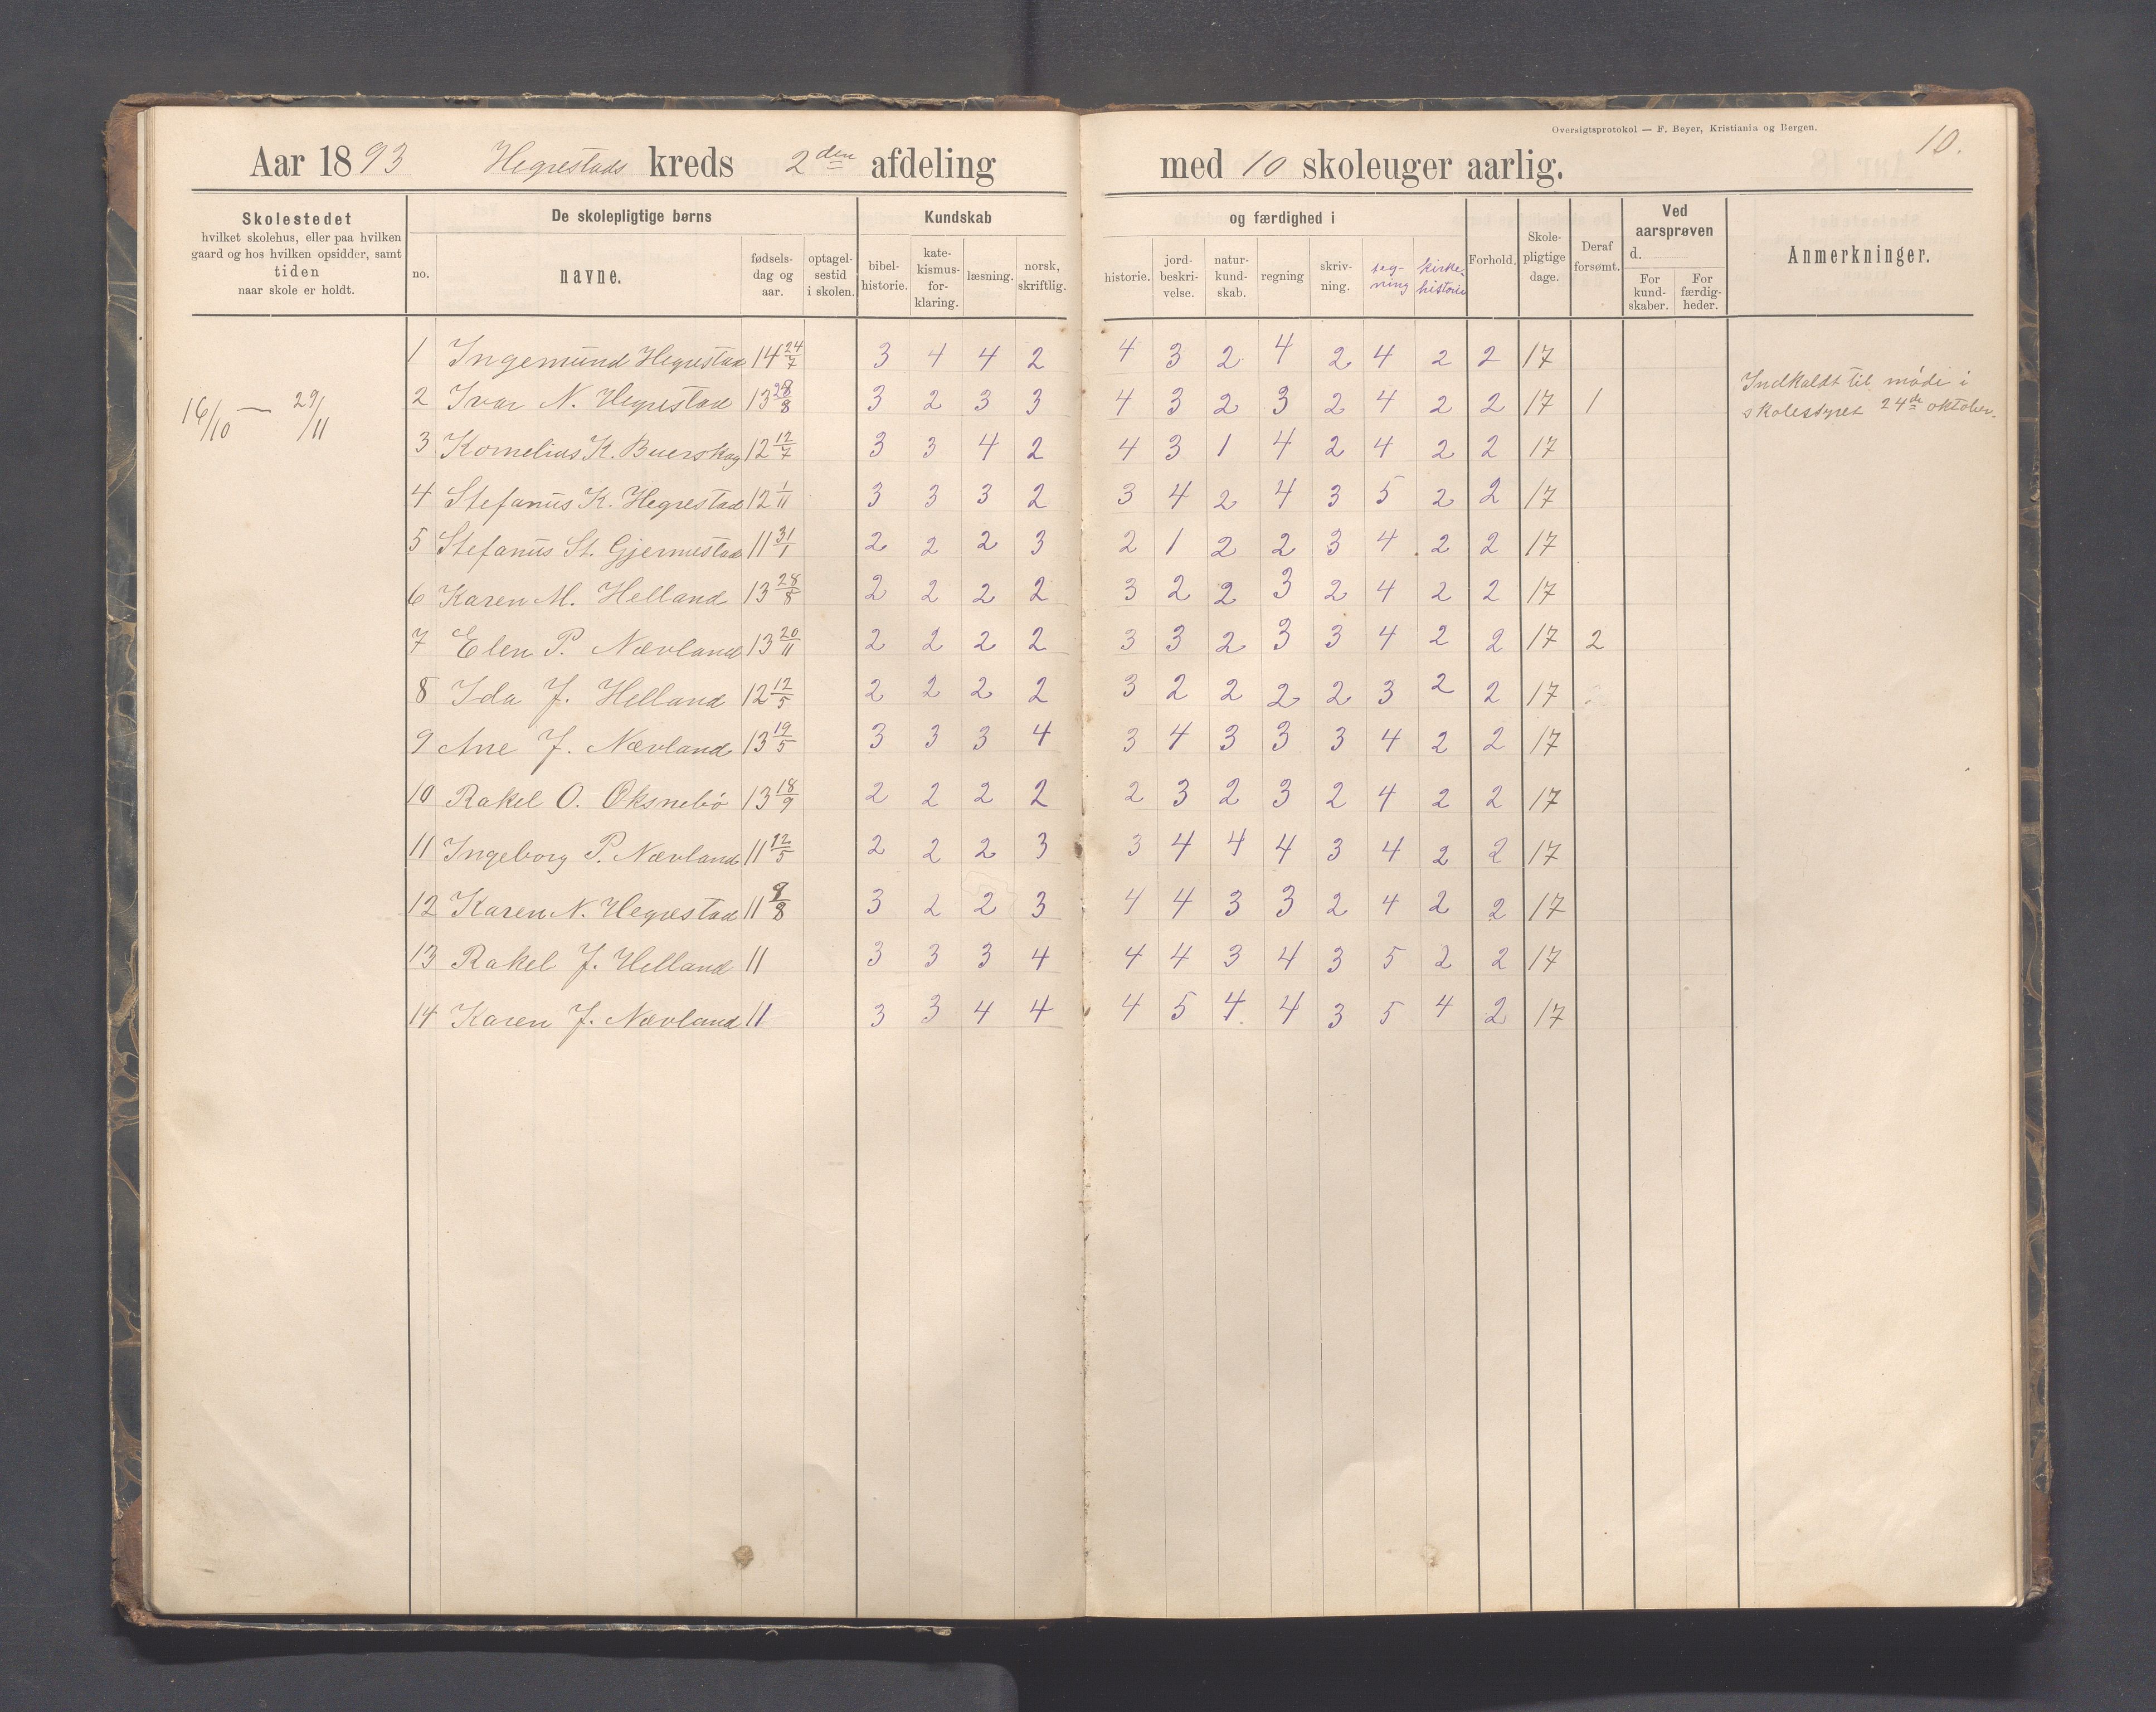 Oversigtsprotokol — F. Beyer, Kristiania og Bergen.
10.
Aar 1893 Hegrestads kreds 2den afdeling med 10 skoleuger aarlig.
Skolestedet
hvilket skolehus, eller paa hvilken
gaard og hos hvilken opsidder, samt
tiden
naar skole er holdt.
De skolepligtige børns
no.
navne.
fødsels-
dag og
aar.
optagel-
sestid
i skolen.
Kundskab
bibel-
historie.
kate-
kismus-
for-
klaring.
læsning.
norsk,
skriftlig.
og færdighed i
historie.
jord-
beskri-
velse.
natur-
kund-
skab.
regning
skriv-
ning.
teg-
ning
kirke-
historie
Forhold.
Skole-
pligtige
dage.
Deraf
forsømt.
Ved
aarsprøven
d.
For
kund-
skaber.
For
færdig-
heder.
Anmerkninger.
16/10 — 29/11
1 Ingemund Hegrestad 14 24/7 3 4 4 2 4 3 2 4 2 4 2 2 17
2 Ivar N. Hegrestad 13 28/8 3 2 3 3 4 3 2 3 2 4 2 2 17 1
Indkaldt til møde i
skolestyret 24de oktober.
3 Kornelius K. Buerskog 12 12/7 3 3 4 2 4 3 1 4 2 4 2 2 17
4 Stefanus K. Hegrestad 12 1/11 3 3 3 2 3 4 2 4 3 5 2 2 17
5 Stefanus St. Gjermestad 11 31/1 2 2 2 3 2 1 2 2 3 4 2 2 17
6 Karen M. Helland 13 28/8 2 2 2 2 3 2 2 3 2 4 2 2 17
7 Elen P. Nævland 13 20/11 2 2 2 2 3 3 2 3 3 4 2 2 17 2
8 Ida J. Helland 12 12/5 2 2 2 2 3 2 2 2 2 3 2 2 17
9 Ane J. Nævland 13 19/5 3 3 3 4 3 4 3 3 3 4 2 2 17
10 Rakel O. Øksnebø 13 18/9 2 2 2 2 2 3 2 3 2 4 2 2 17
11 Ingeborg P. Nævland 11 12/5 2 2 2 3 3 4 4 4 3 4 2 2 17
12 Karen N. Hegrestad 11 9/8 3 2 2 3 4 4 3 3 2 4 2 2 17
13 Rakel J. Helland 11 3 3 3 4 4 4 3 4 3 5 2 2 17
14 Karen J. Nævland 11 3 3 4 4 4 5 4 4 3 5 4 2 17